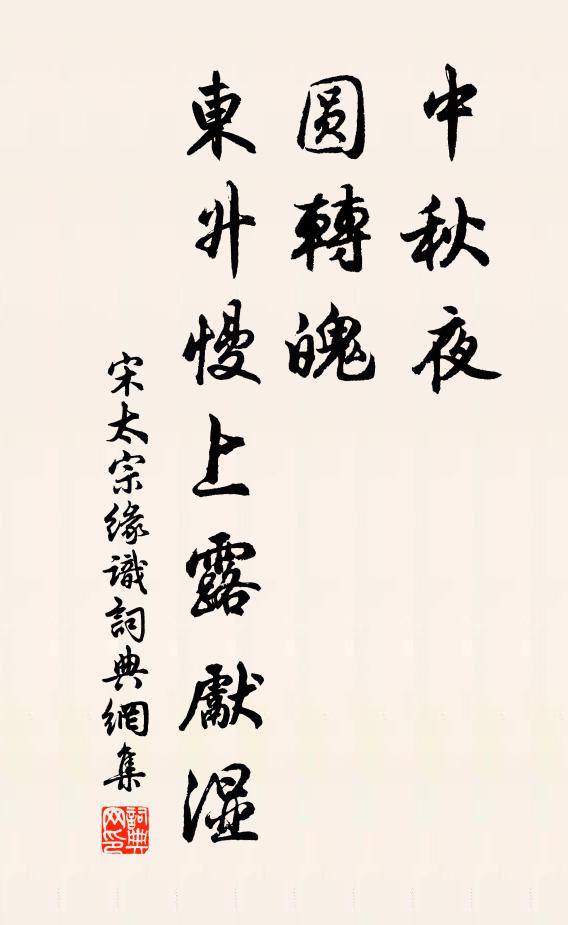 中秋夜
圓轉魄
東升慢上露獻濕
宋太宗緣識詞典網集
詞典網印